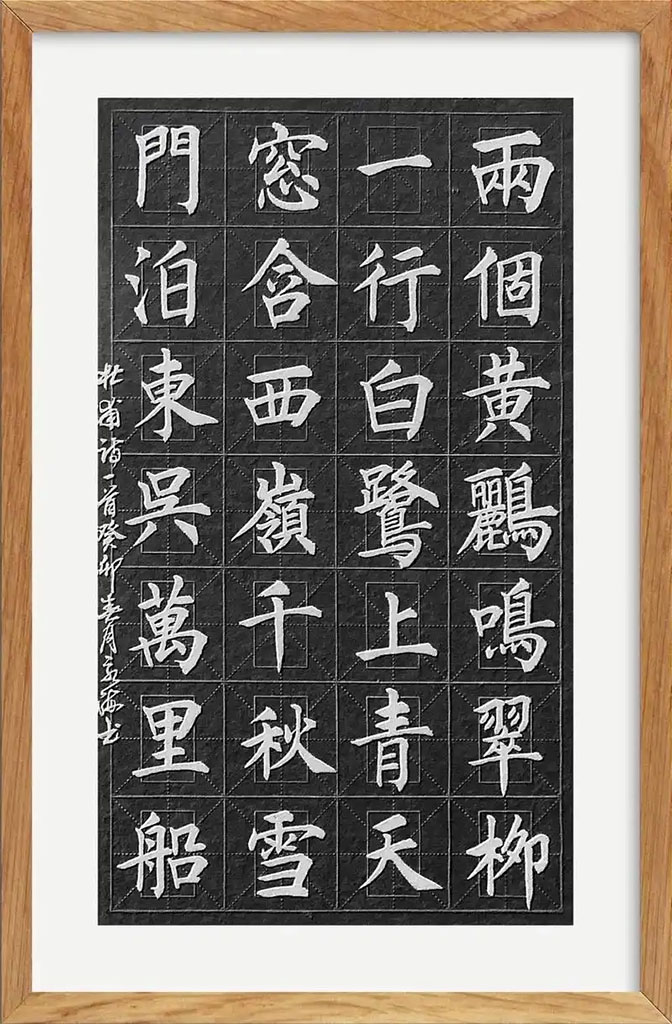 兩個黃鸝鳴翠柳
一行白鷺上青天
窓含西嶺千秋雪
門泊東吳萬里船
杜甫詩一首癸卯春月